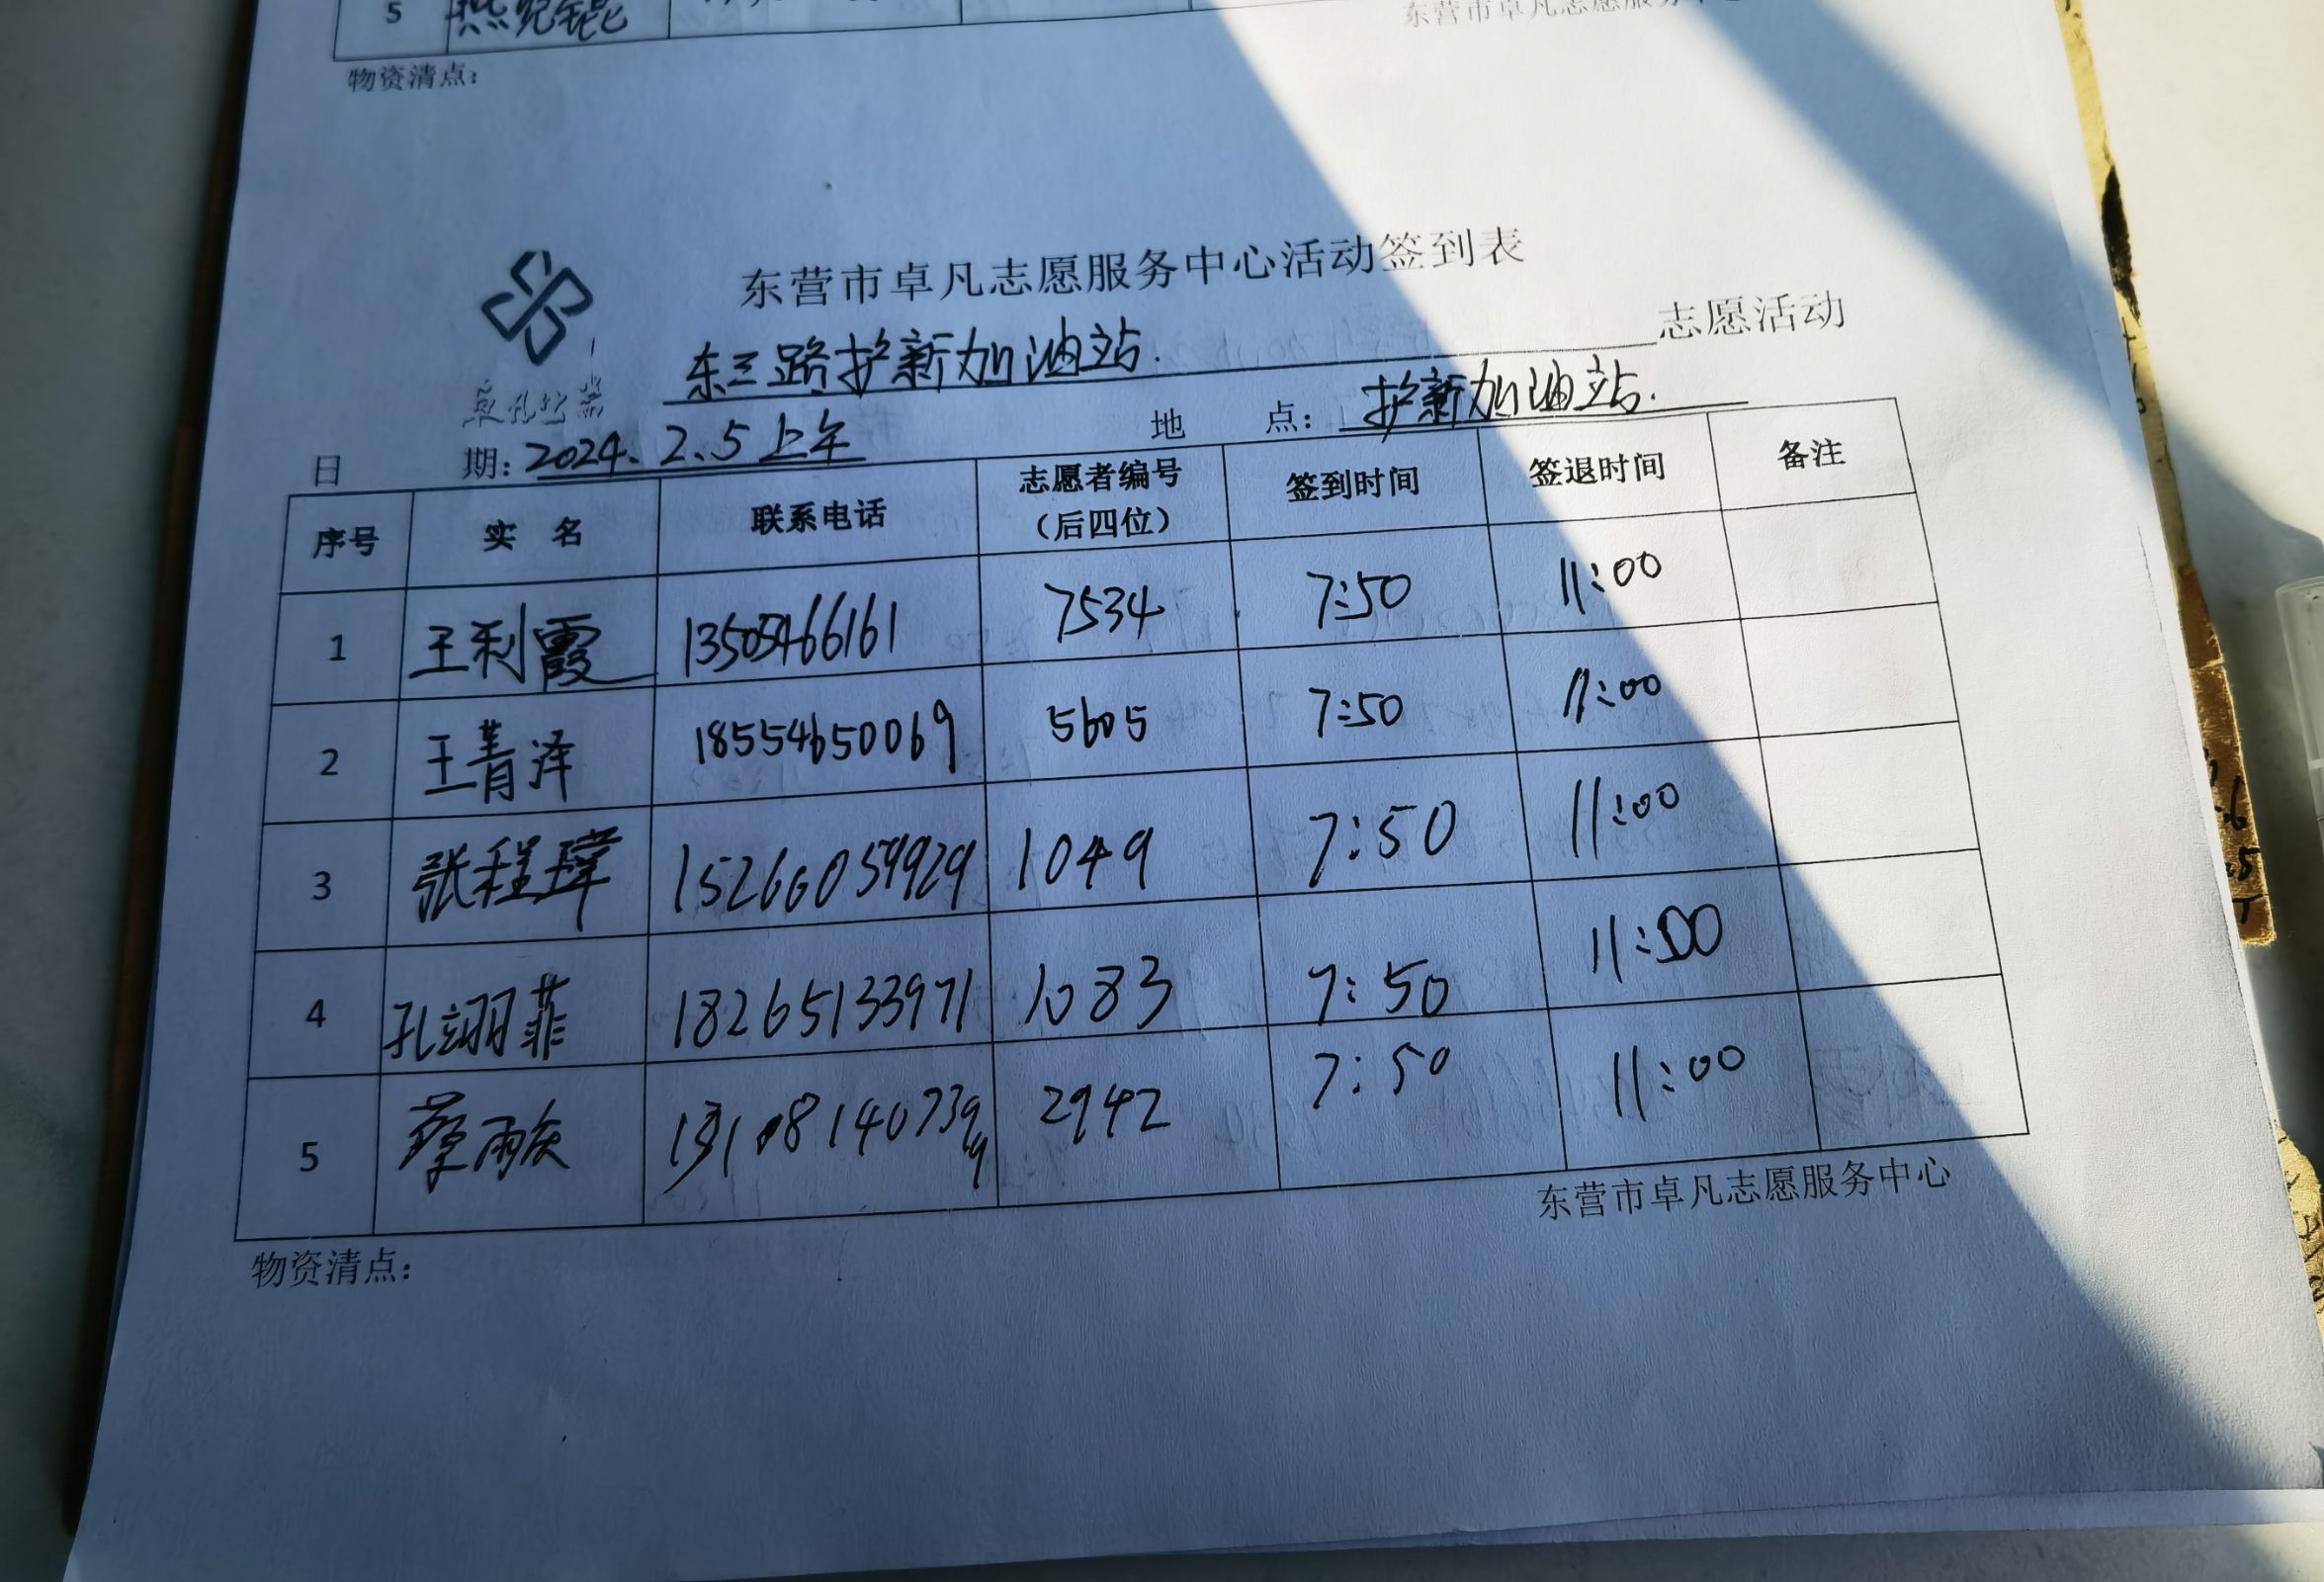 5
物资清点：
东营市卓凡志愿服务中心活动签到表
东三路护新加油站. 志愿活动
卓凡公益
日 期：2024.2.5上午 地 点：护新加油站.
序号 实 名 联系电话 志愿者编号（后四位） 签到时间 签退时间 备注
1 王利霞 13505466161 7534 7:50 11:00
2 王菁泽 18554650069 5605 7:50 11:00
3 张程玮 15266059929 1049 7:50 11:00
4 孔翊菲 18265133971 1083 7:50 11:00
5 蔡雨 2942 7:50 11:00
东营市卓凡志愿服务中心
物资清点：